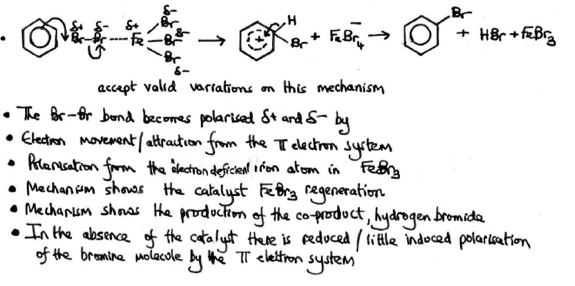 δ- δ-
δ+ δ- δ+ Br H Br
• Br-Br ---- Fe - Br δ- → + Br + FeBr4- → + HBr + FeBr3
Br
δ-
accept valid variations on this mechanism
• The Br-Br bond becomes polarised δ+ and δ- by
• Electron movement/attraction from the π electron system
• Polarisation from the electron deficient iron atom in FeBr3
• Mechanism shows the catalyst FeBr3 regeneration
• Mechanism shows the production of the co-product, hydrogen bromide
• In the absence of the catalyst there is reduced / little induced polarisation
of the bromine molecule by the π electron system